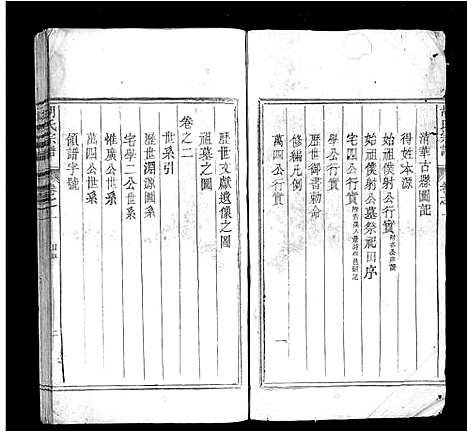 清華古縣圖記
得姓本源
始祖僕射公行實
始祖僕射公墓祭祀田序
宅公行實
學公行實
歷世御書勅命
修編凡例
萬四公行實
一
歷世文獻遺像之圖
祖墓之圖
卷之二
世系引
歷世淵源圖系
宅學二公世系
惟廣公世系
萬四公世系
領譜字號
胡氏宗譜